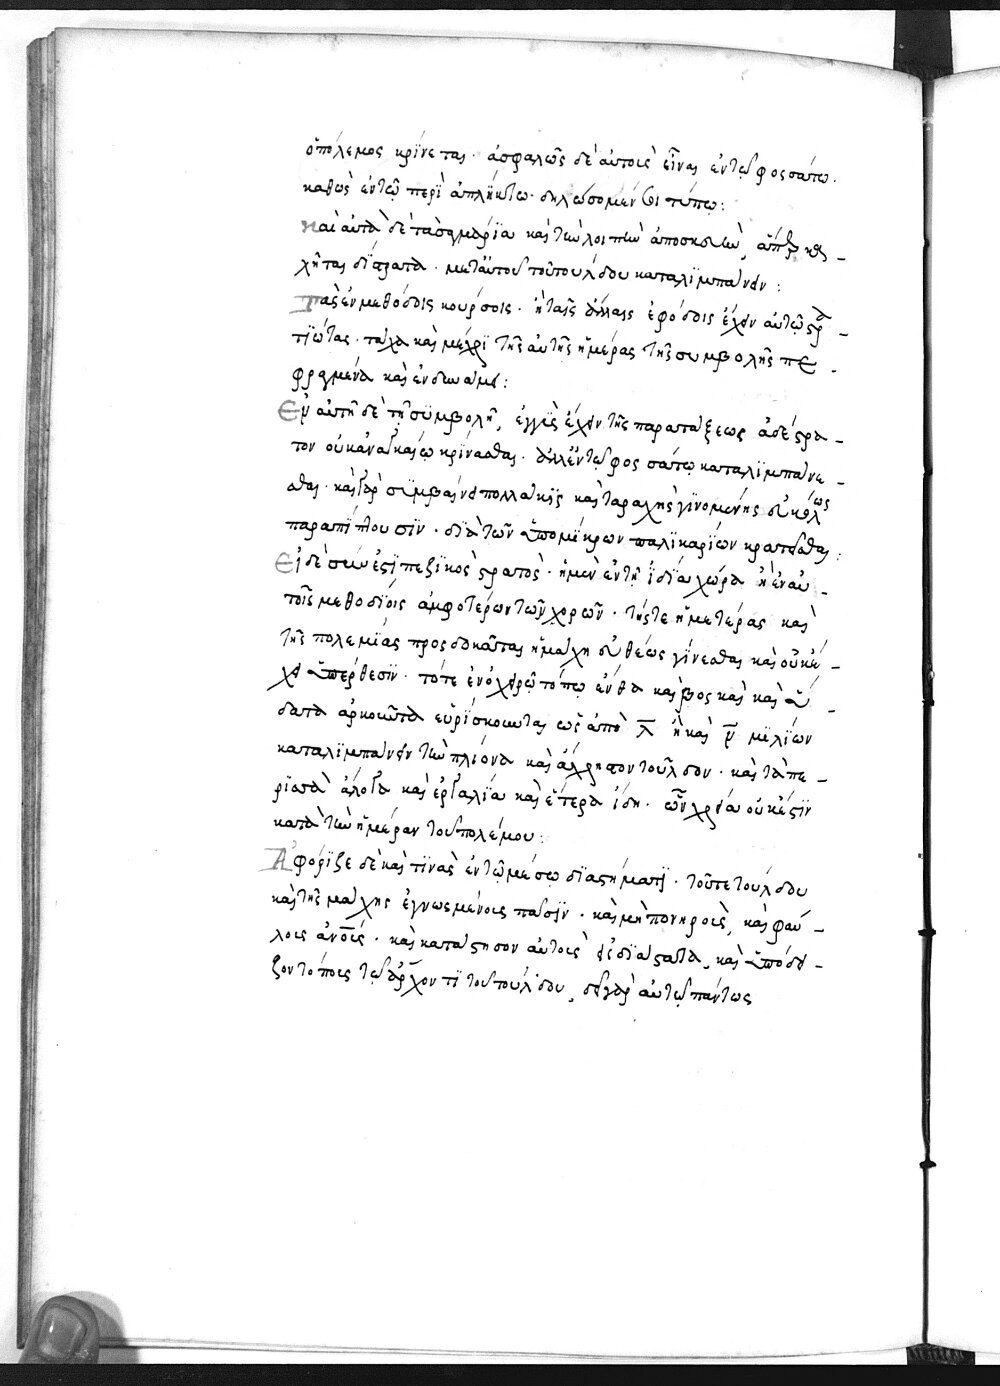 ὁ πόλεμος κρίνεται· ἀσφαλῶς δὲ αὐτοὺς εἶναι ἐν τῷ φοσσάτω.
καθὼς ἐν τῷ περὶ ἀπλήκτω δηλώσομεν τόπῳ:
καὶ αὐτὰ δὲ τὰ σαγμάρια καὶ τὴν λοιπὴν ἀποσκευὴν,
χῆται διάσατα· μετ' αὐτοῦ τοῦ τούλδου καταλιμπάνειν:
Τὰς ἐν μεθόδοις κούρσοις· ἢ ταῖς ἄλλαις ἐφόδοις ἔχειν αὐτῷ στρα-
τιώτας· τάχα καὶ μέχρι τῆς αὐτῆς ἡμέρας τῆς συμβολῆς πε-
φραγμένα καὶ ἐνδυναμ:
Ἐν αὐτῇ δὲ τῇ συμβολῇ, ἐγγὺς ἔχειν τῆς παρατάξεως ἀδέστρα-
τον οὐκ ἀναγκαίῳ κρίνασθαι· ἀλλ' ἐν τῷ φοσσάτῳ καταλιμπάνε-
σθαι· καὶ γὰρ συμβαίνει πολλάκις καὶ ταραχῆς γινομένης εὐκόλως
παραπίπτουσιν· διὰ τῶν ὑπομίκρων παλικαρίων κρατεῖσθαι:
Εἰ δὲ σύνεστι πεζικὸς στρατὸς· ἢ μὲν ἐν τῇ ἰδίᾳ χώρᾳ ἢ ἐν αὐ-
τοῖς μεθοδίοις ἀμφοτέρων τῶν χωρῶν· τῆς τε ἡμετέρας καὶ
τῆς πολεμίας προσδοκᾶται ἡ μάχη εὐθέως γίνεσθαι καὶ οὐκ ἔ-
χει ὑπέρθεσιν· τότε ἐν ὀχυρῷ τόπῳ ἔνθα καὶ βος καὶ καὶ ὕ-
δατα ἀρκοῦντα εὑρίσκουνται ὡς ἀπὸ λ̅ ἢ καὶ ν̅ μιλίων
καταλιμπάνειν τὴν πλίονα καὶ ἄχρηστον τοῦλδον· καὶ τὰ πε-
ρισσὰ ἄλογα καὶ ἐργαλία καὶ ἕτερα εἴδη· ὧν χρεία οὐκ ἔστιν
κατὰ τὴν ἡμέραν τοῦ πολέμου:
Ἀφόριζε δὲ καὶ τινὰς ἐν τῷ μέσῳ διαστήματι· τοῦ τε τούλδου
καὶ τῆς μάχης ἐγνωσμένοις πᾶσιν· καὶ μὴ πονηροὺς, καὶ φαύ-
λοις ἀνο̅ις· καὶ κατάστησον αὐτοὺς εἰς διάσατα, καὶ ὑπόδει-
ξον τόποις τῷ ἄρχοντι τοῦ τούλδου, δεῖ γὰρ αὐτῷ πάντως